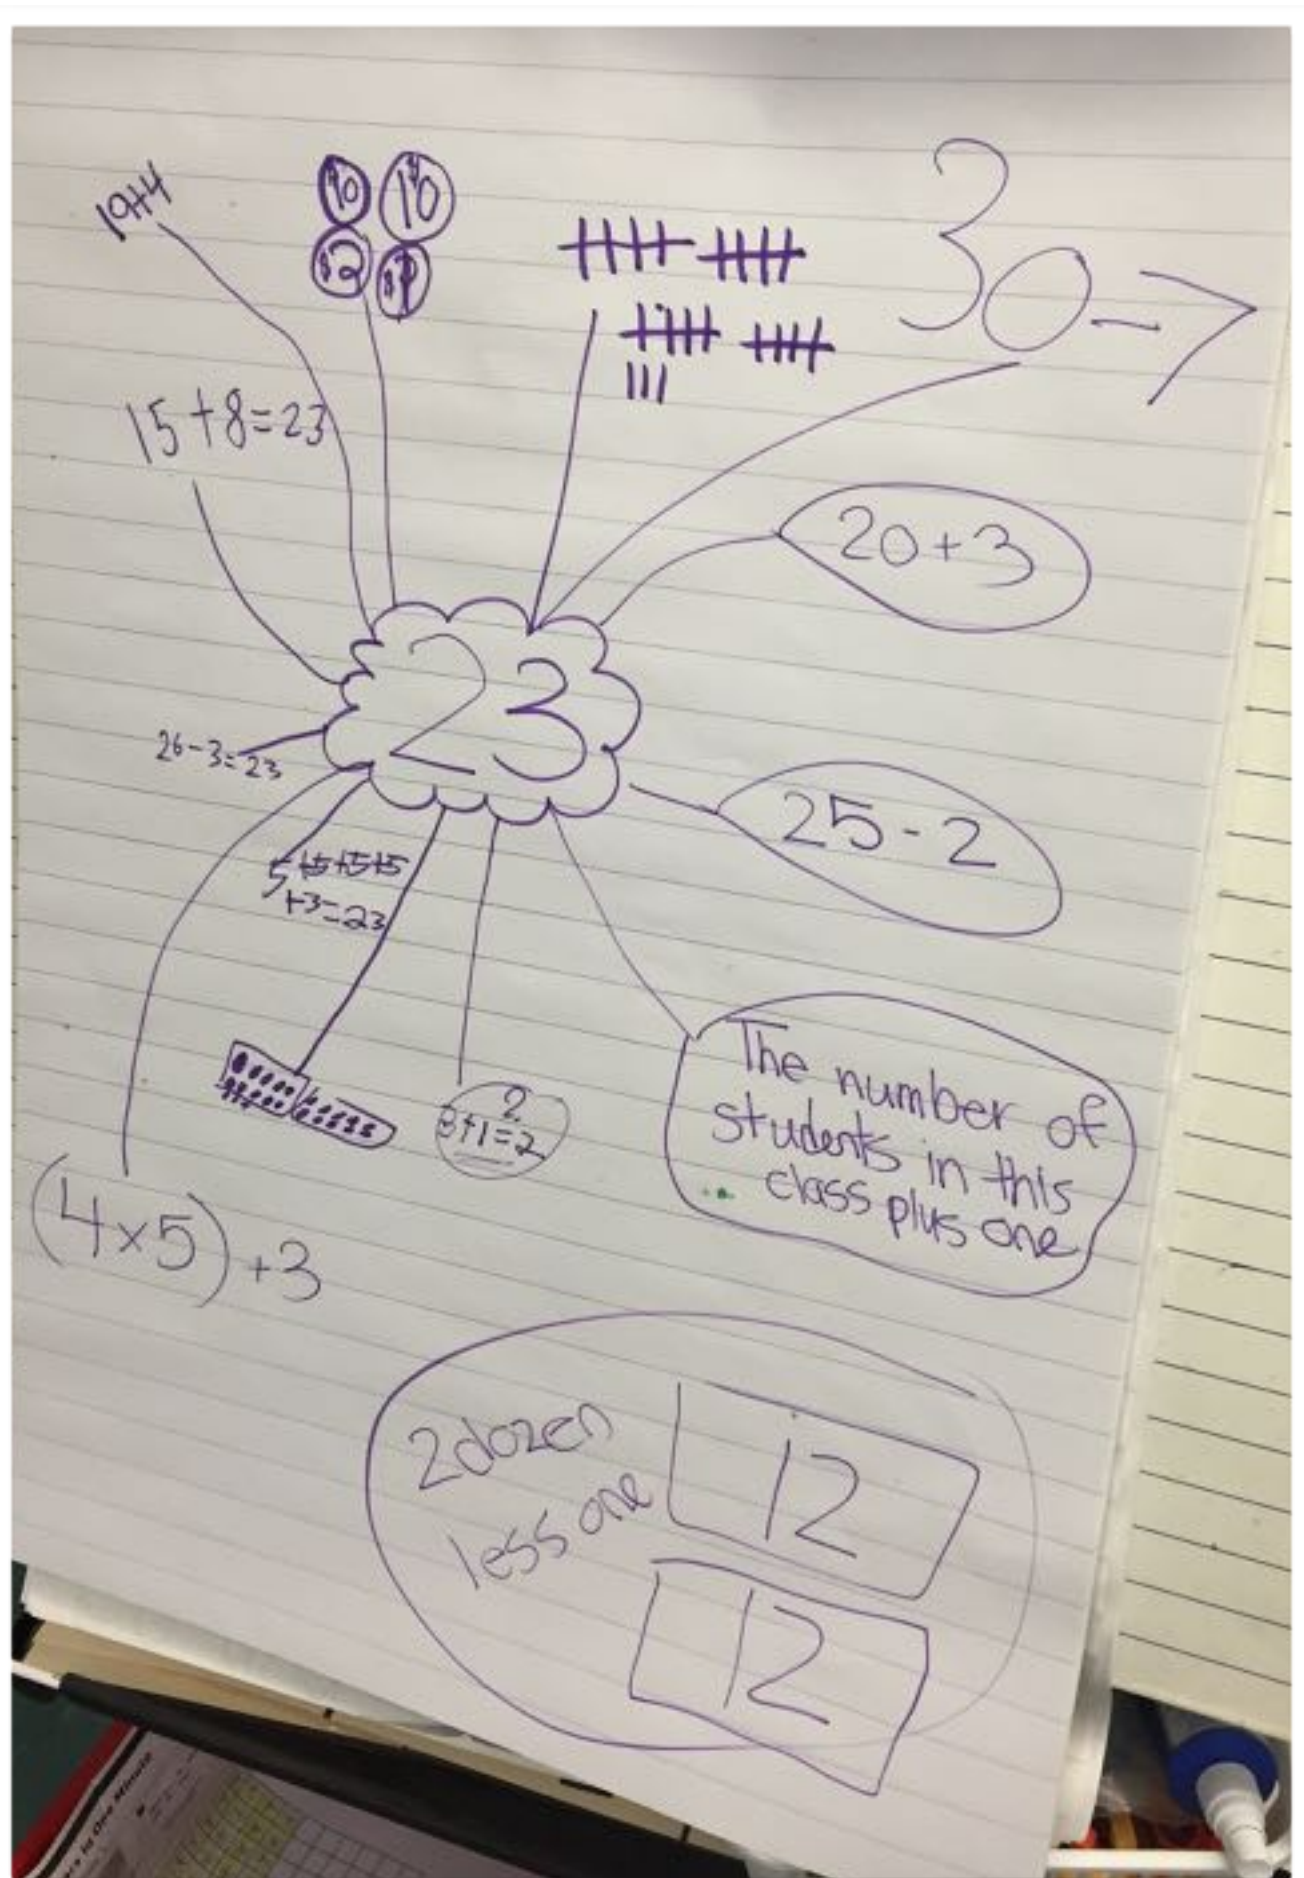 19+4
$10 $10
$2 $1
30-7
15+8=23
20+3
23
26-3=23
25-2
5+5+5+5
+3=23
The number of
students in this
class plus one
2
(4x5)+3
2 dozen
less one
12
12
One Minute